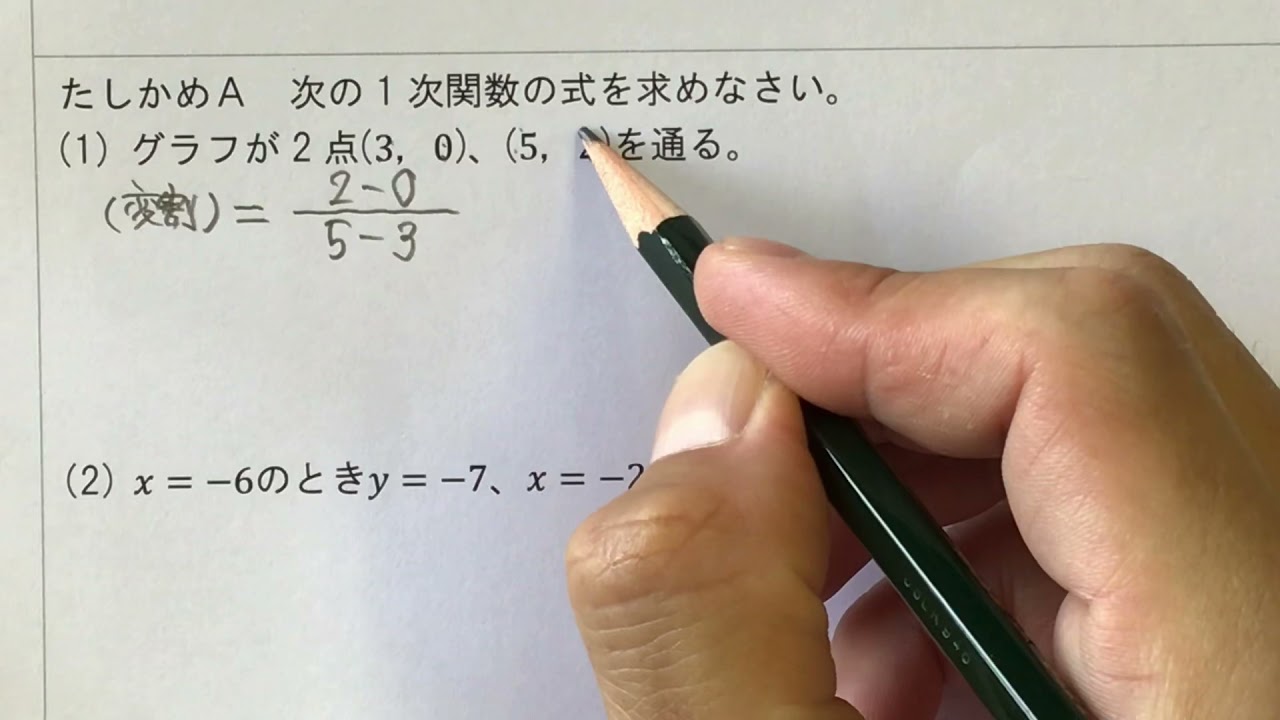 たしかめA 次の1次関数の式を求めなさい。
(1) グラフが2点(3, 0)、(5, 2)を通る。
(変割) = 2-0
5-3
(2) x = −6のときy = −7、x = −2